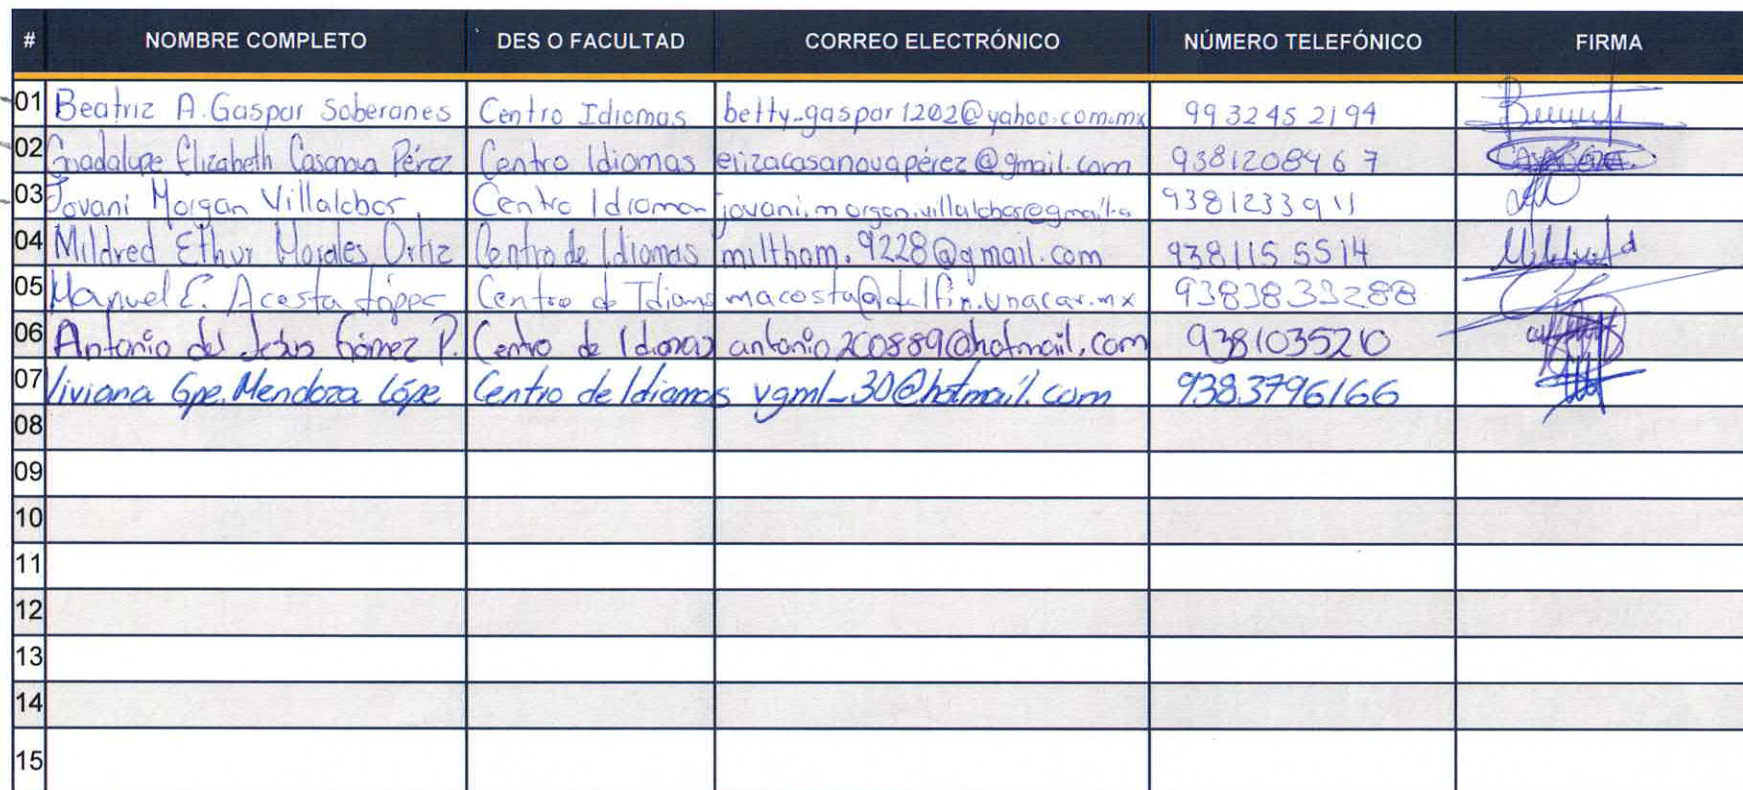 # NOMBRE COMPLETO DES O FACULTAD CORREO ELECTRÓNICO NÚMERO TELEFÓNICO FIRMA
01 Beatriz A. Gaspar Soberanes Centro Idiomas betty-gaspar1202@yahoo.com.mx 993245 2194
02 Guadalupe Elizabeth Casanova Pérez Centro Idiomas erizacasanovapérez@gmail.com 9381208967
03 Jovani Morgan Villalobos Centro Idiomas 9381233911
04 Mildred Ethur Morales Ortiz Centro de Idiomas miltham.9228@gmail.com 938115 5514 Mildred
05 Manuel E. Acosta López Centro de Idioms macosta@delfin.unacar.mx 9383833288
06 Antonio del Jesús Gómez P. Centro de Idiomas antonio200889@hotmail.com 9381035210
07 Viviana Gpe. Mendoza Lópe Centro de Idiomas vgml_30@hotmail.com 9383796166
08
09
10
11
12
13
14
15